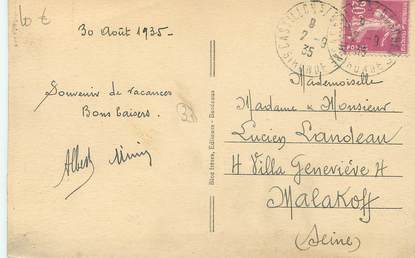 10 €
30 Août 1935-
Souvenir de vacances
Bons baisers.
33
Albert
Bloc Frères, Editeurs - Bordeaux
8
2-9
35
Mademoiselle
Madame & Monsieur
Lucien Landeau
4 Villa Geneviève 4
Malakoff
(Seine)